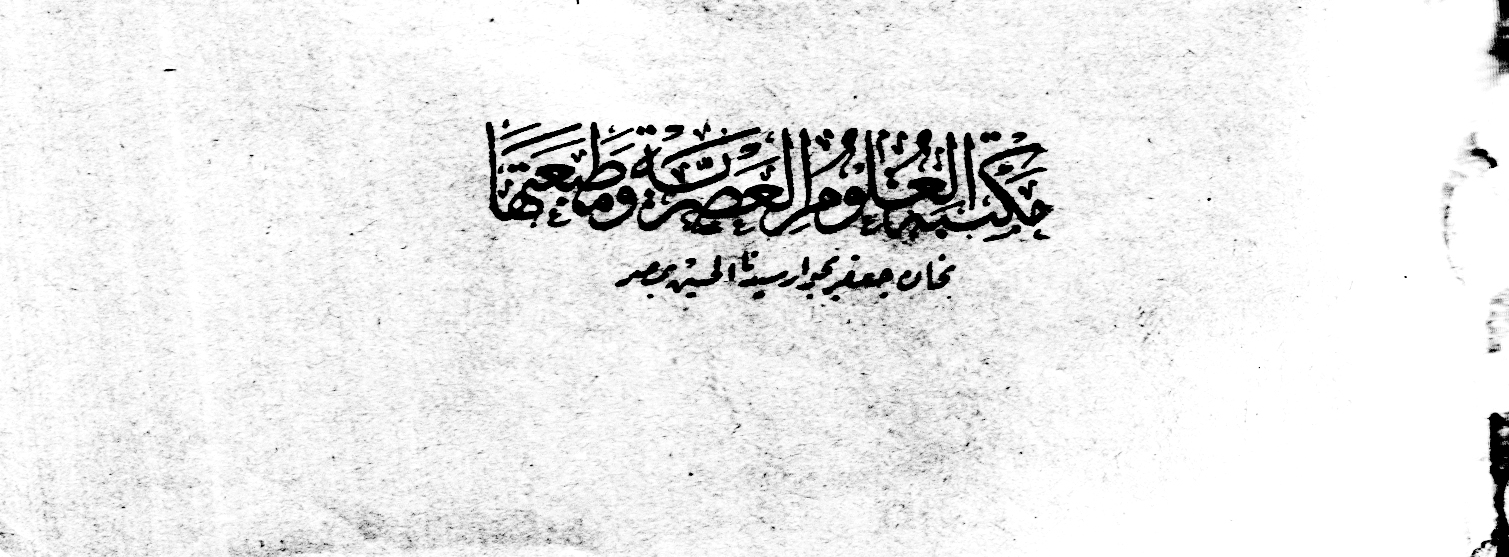 مكتبة العلوم العصرية ومطبعتها
بخان جعفر بجوار سيدنا الحسين بمصر